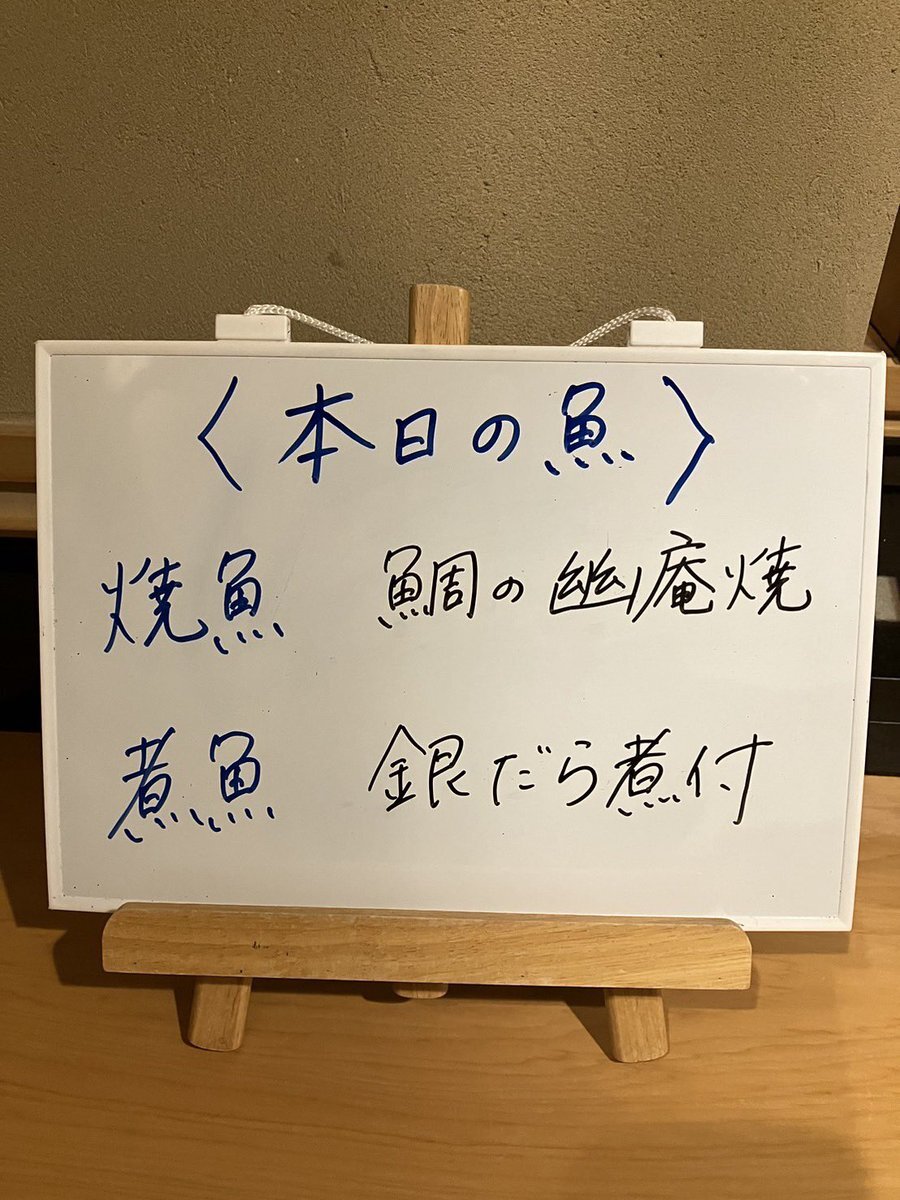 〈本日の魚〉
焼魚 鯛の幽庵焼
煮魚 銀だら煮付